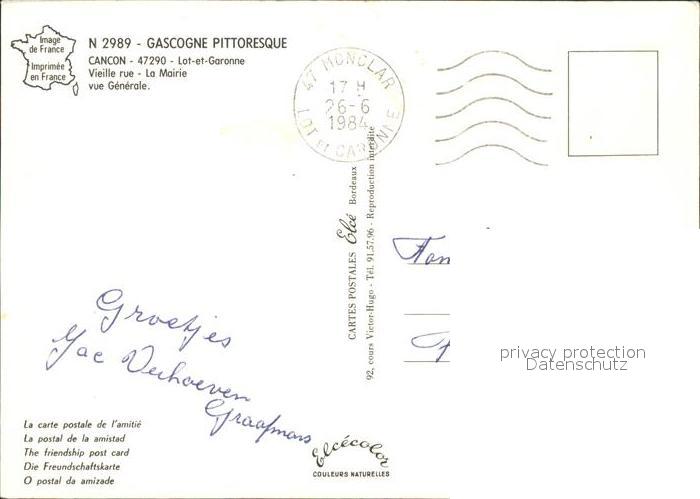 Image
de France
Imprimée
en France
N 2989 - GASCOGNE PITTORESQUE
CANCON - 47290 - Lot-et-Garonne
Vieille rue - La Mairie
vue Générale.
47 MONCLAR
17 H
26-6
1984
LOT ET GARONNE
CARTES POSTALES Elcé Bordeaux
92, cours Victor-Hugo - Tél. 91.57.96 - Reproduction interdite
Fam
privacy protection
Datenschutz
Groetjes
Jac Verhoeven
Graafmans
La carte postale de l'amitié
La postal de la amistad
The friendship post card
Die Freundschaftskarte
O postal da amizade
Elcécolor
COULEURS NATURELLES